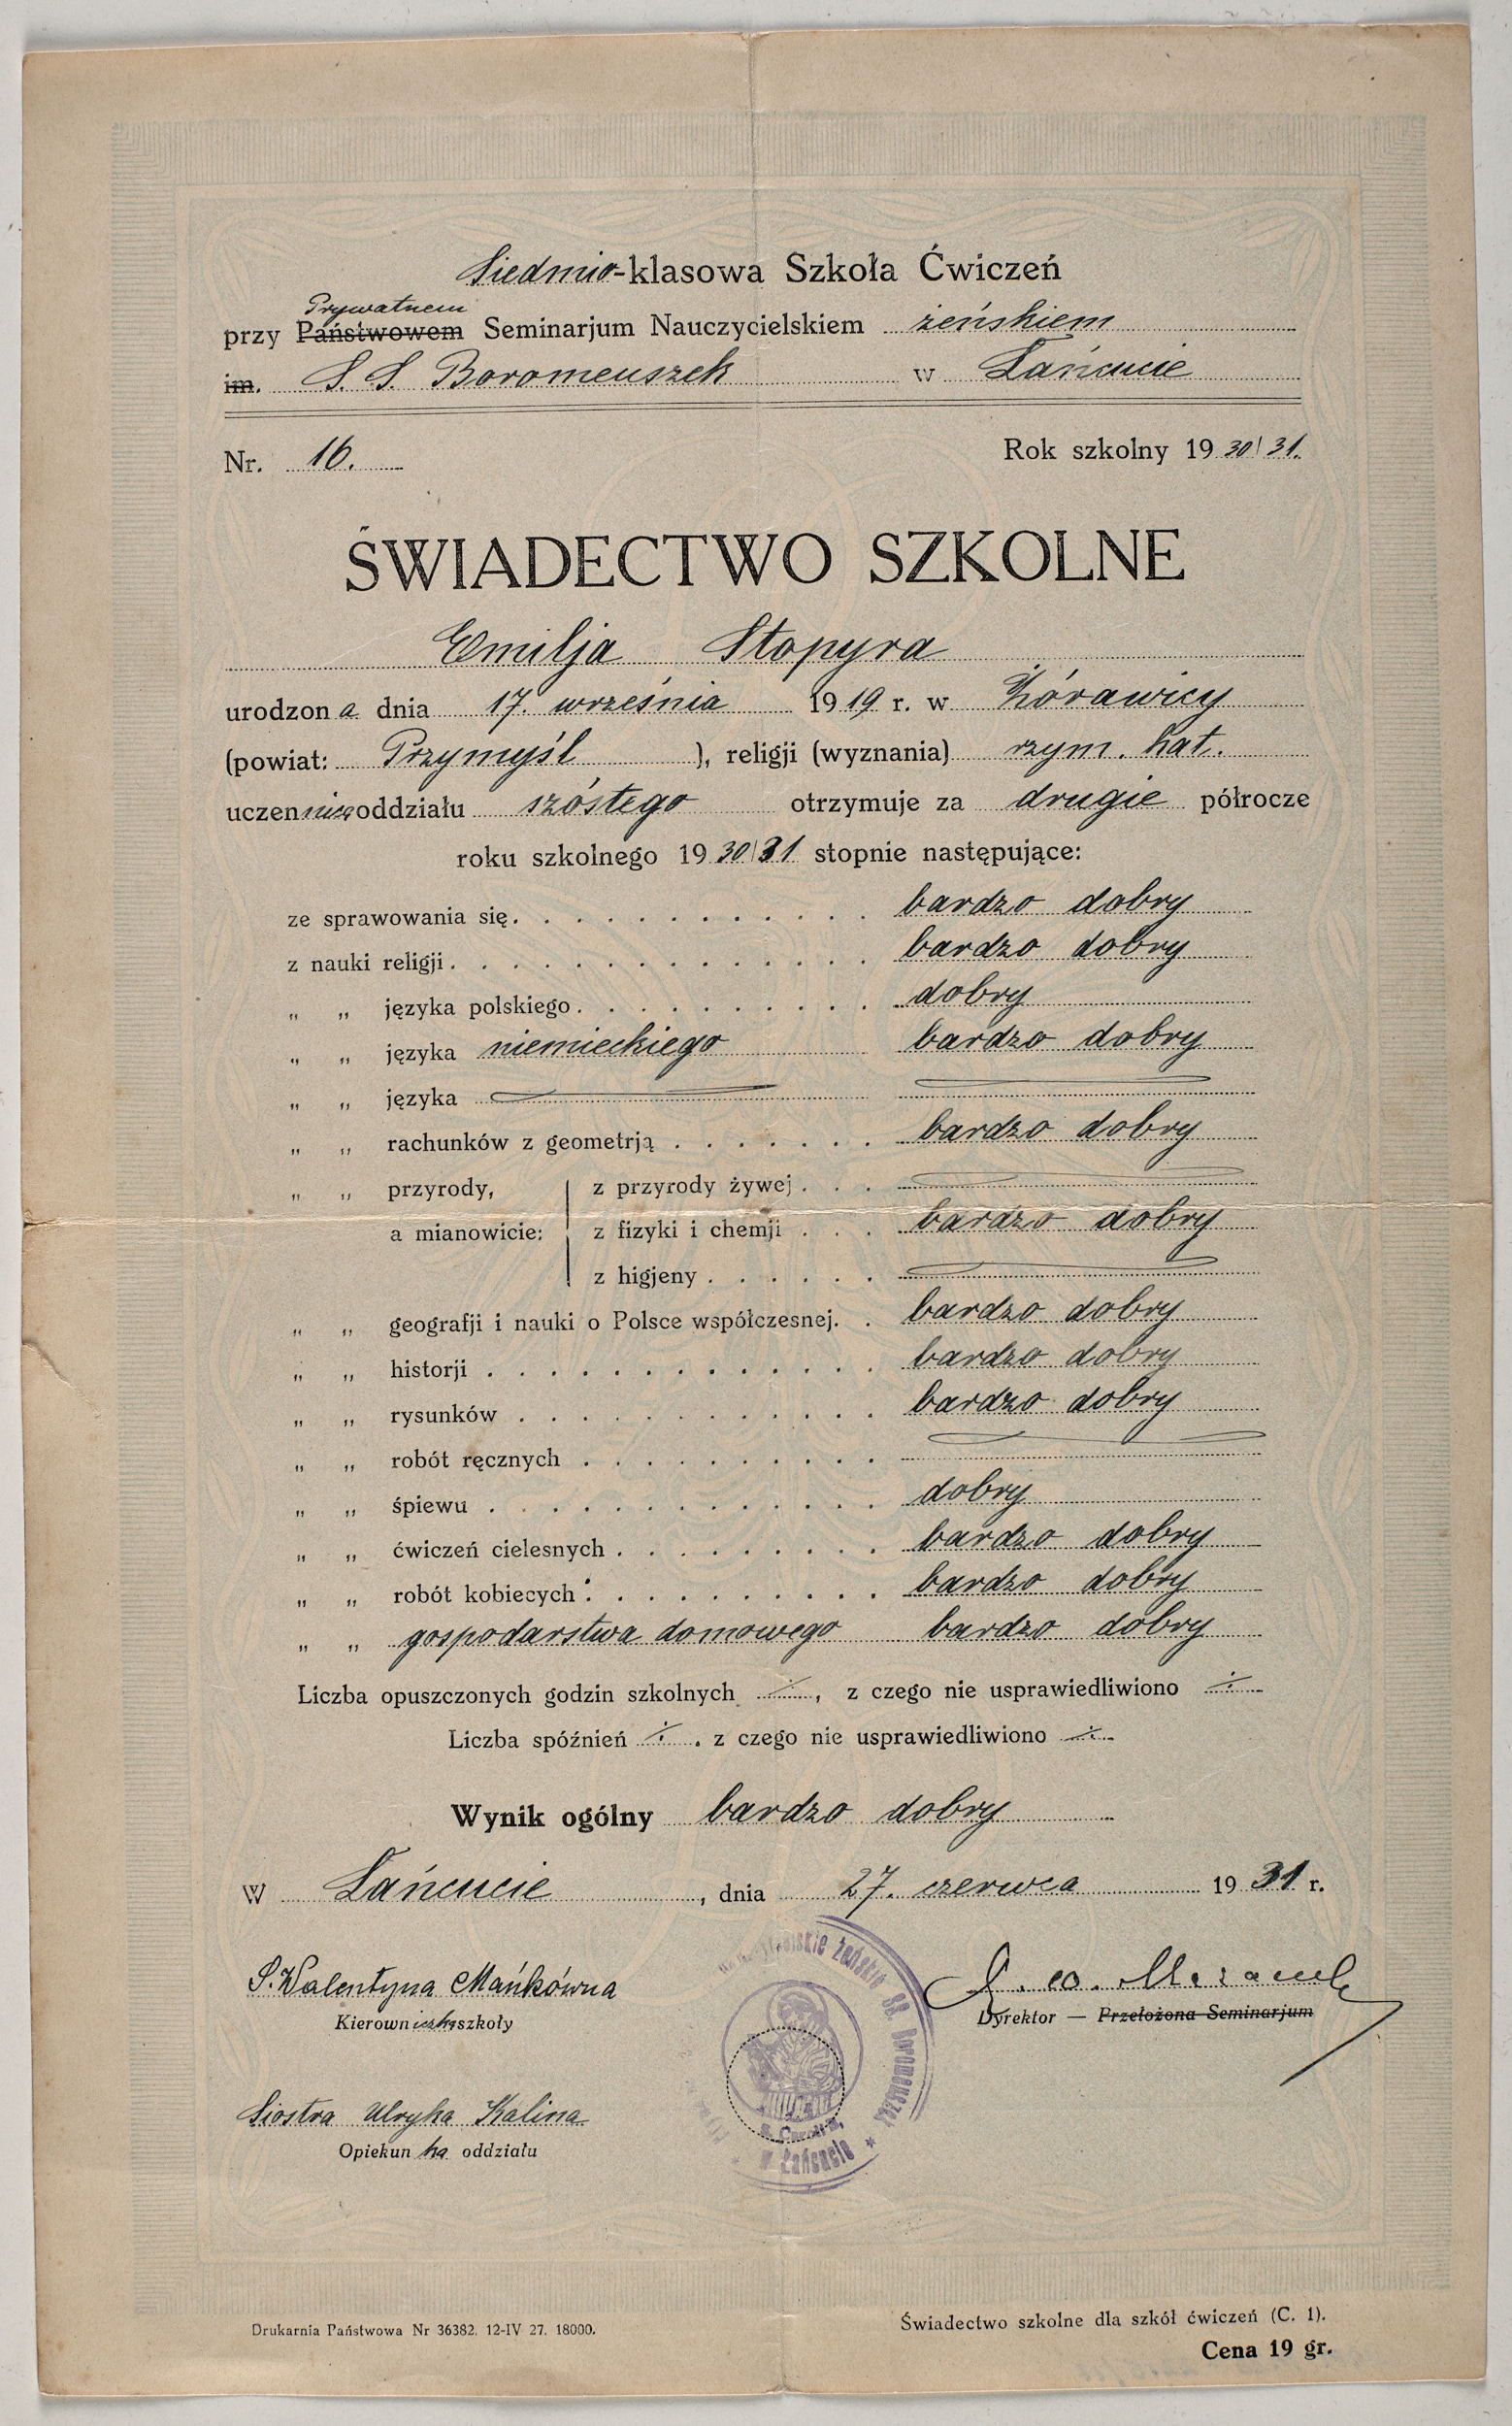 Siedmio-klasowa Szkoła Ćwiczeń
Prywatnem
przy Państwowem Seminarjum Nauczycielskiem żeńskiem
im. S. S. Boromeuszek w Łańcucie
Nr. 16. Rok szkolny 1930/31.
ŚWIADECTWO SZKOLNE
Emilja Stopyra
urodzona dnia 17. września 1919 r. w Żórawicy
(powiat: Przymyśl ), religji (wyznania) rzym. kat.
uczennica oddziału szóstego otrzymuje za drugie półrocze
roku szkolnego 1930/31 stopnie następujące:
ze sprawowania się. . . . . . . . . . . . bardzo dobry
z nauki religji. . . . . . . . . . . . . . bardzo dobry
„ „ języka polskiego. . . . . . . . . . dobry
„ „ języka niemieckiego bardzo dobry
„ „ języka
„ „ rachunków z geometrją . . . . . . . bardzo dobry
„ „ przyrody, z przyrody żywej . . .
a mianowicie: z fizyki i chemji . . . bardzo dobry
z higjeny . . . . . .
„ „ geografji i nauki o Polsce współczesnej. . bardzo dobry
„ „ historji . . . . . . . . . . . . . bardzo dobry
„ „ rysunków . . . . . . . . . . . . bardzo dobry
„ „ robót ręcznych . . . . . . . . . .
„ „ śpiewu . . . . . . . . . . . . . dobry
„ „ ćwiczeń cielesnych . . . . . . . . . bardzo dobry
„ „ robót kobiecych . . . . . . . . . . bardzo dobry
„ „ gospodarstwa domowego bardzo dobry
Liczba opuszczonych godzin szkolnych ·/·, z czego nie usprawiedliwiono ·/·
Liczba spóźnień ·/·. z czego nie usprawiedliwiono ·/·
Wynik ogólny bardzo dobry
W Łańcucie, dnia 27. czerwca 1931 r.
S. Walentyna Mańkówna
Kierowniczka szkoły
Dyrektor — Przełożona Seminarjum
Siostra Ulryka Kalina
Opiekunka oddziału
żeńskie SS. Boromeuszek
w Łańcucie *
Drukarnia Państwowa Nr 36382. 12-IV 27. 18000.
Świadectwo szkolne dla szkół ćwiczeń (C. 1).
Cena 19 gr.